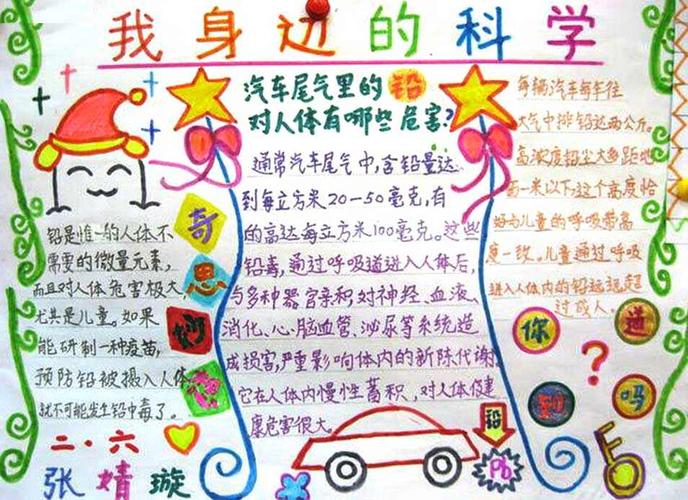 我身边的科学
铅是惟一的人体不
需要的微量元素,
而且对人体危害极大,
尤其是儿童。如果
能研制一种疫苗,
预防铅被摄入人体
就不可能发生铅中毒了。
奇
思
妙
二·六
张婧漩
汽车尾气里的铅
对人体有哪些危害?
通常汽车尾气中,含铅量达
到每立方米20-50毫克,有
的高达每立方米100毫克。这些
铅毒,通过呼吸道进入人体后,
与多种器官亲和,对神经、血液、
消化、心、脑血管、泌尿等系统造
成损害,严重影响体内的新陈代谢。
它在人体内慢性蓄积,对人体健
康危害很大。
铅
Pb
每辆汽车每年往
大气中排铅达两公斤。
高浓度铅尘大多距地
面一米以下,这个高度恰
好与儿童的呼吸带高
度一致。儿童通过呼吸
进入人体内的铅远远超
过成人。
你
到
吗
?